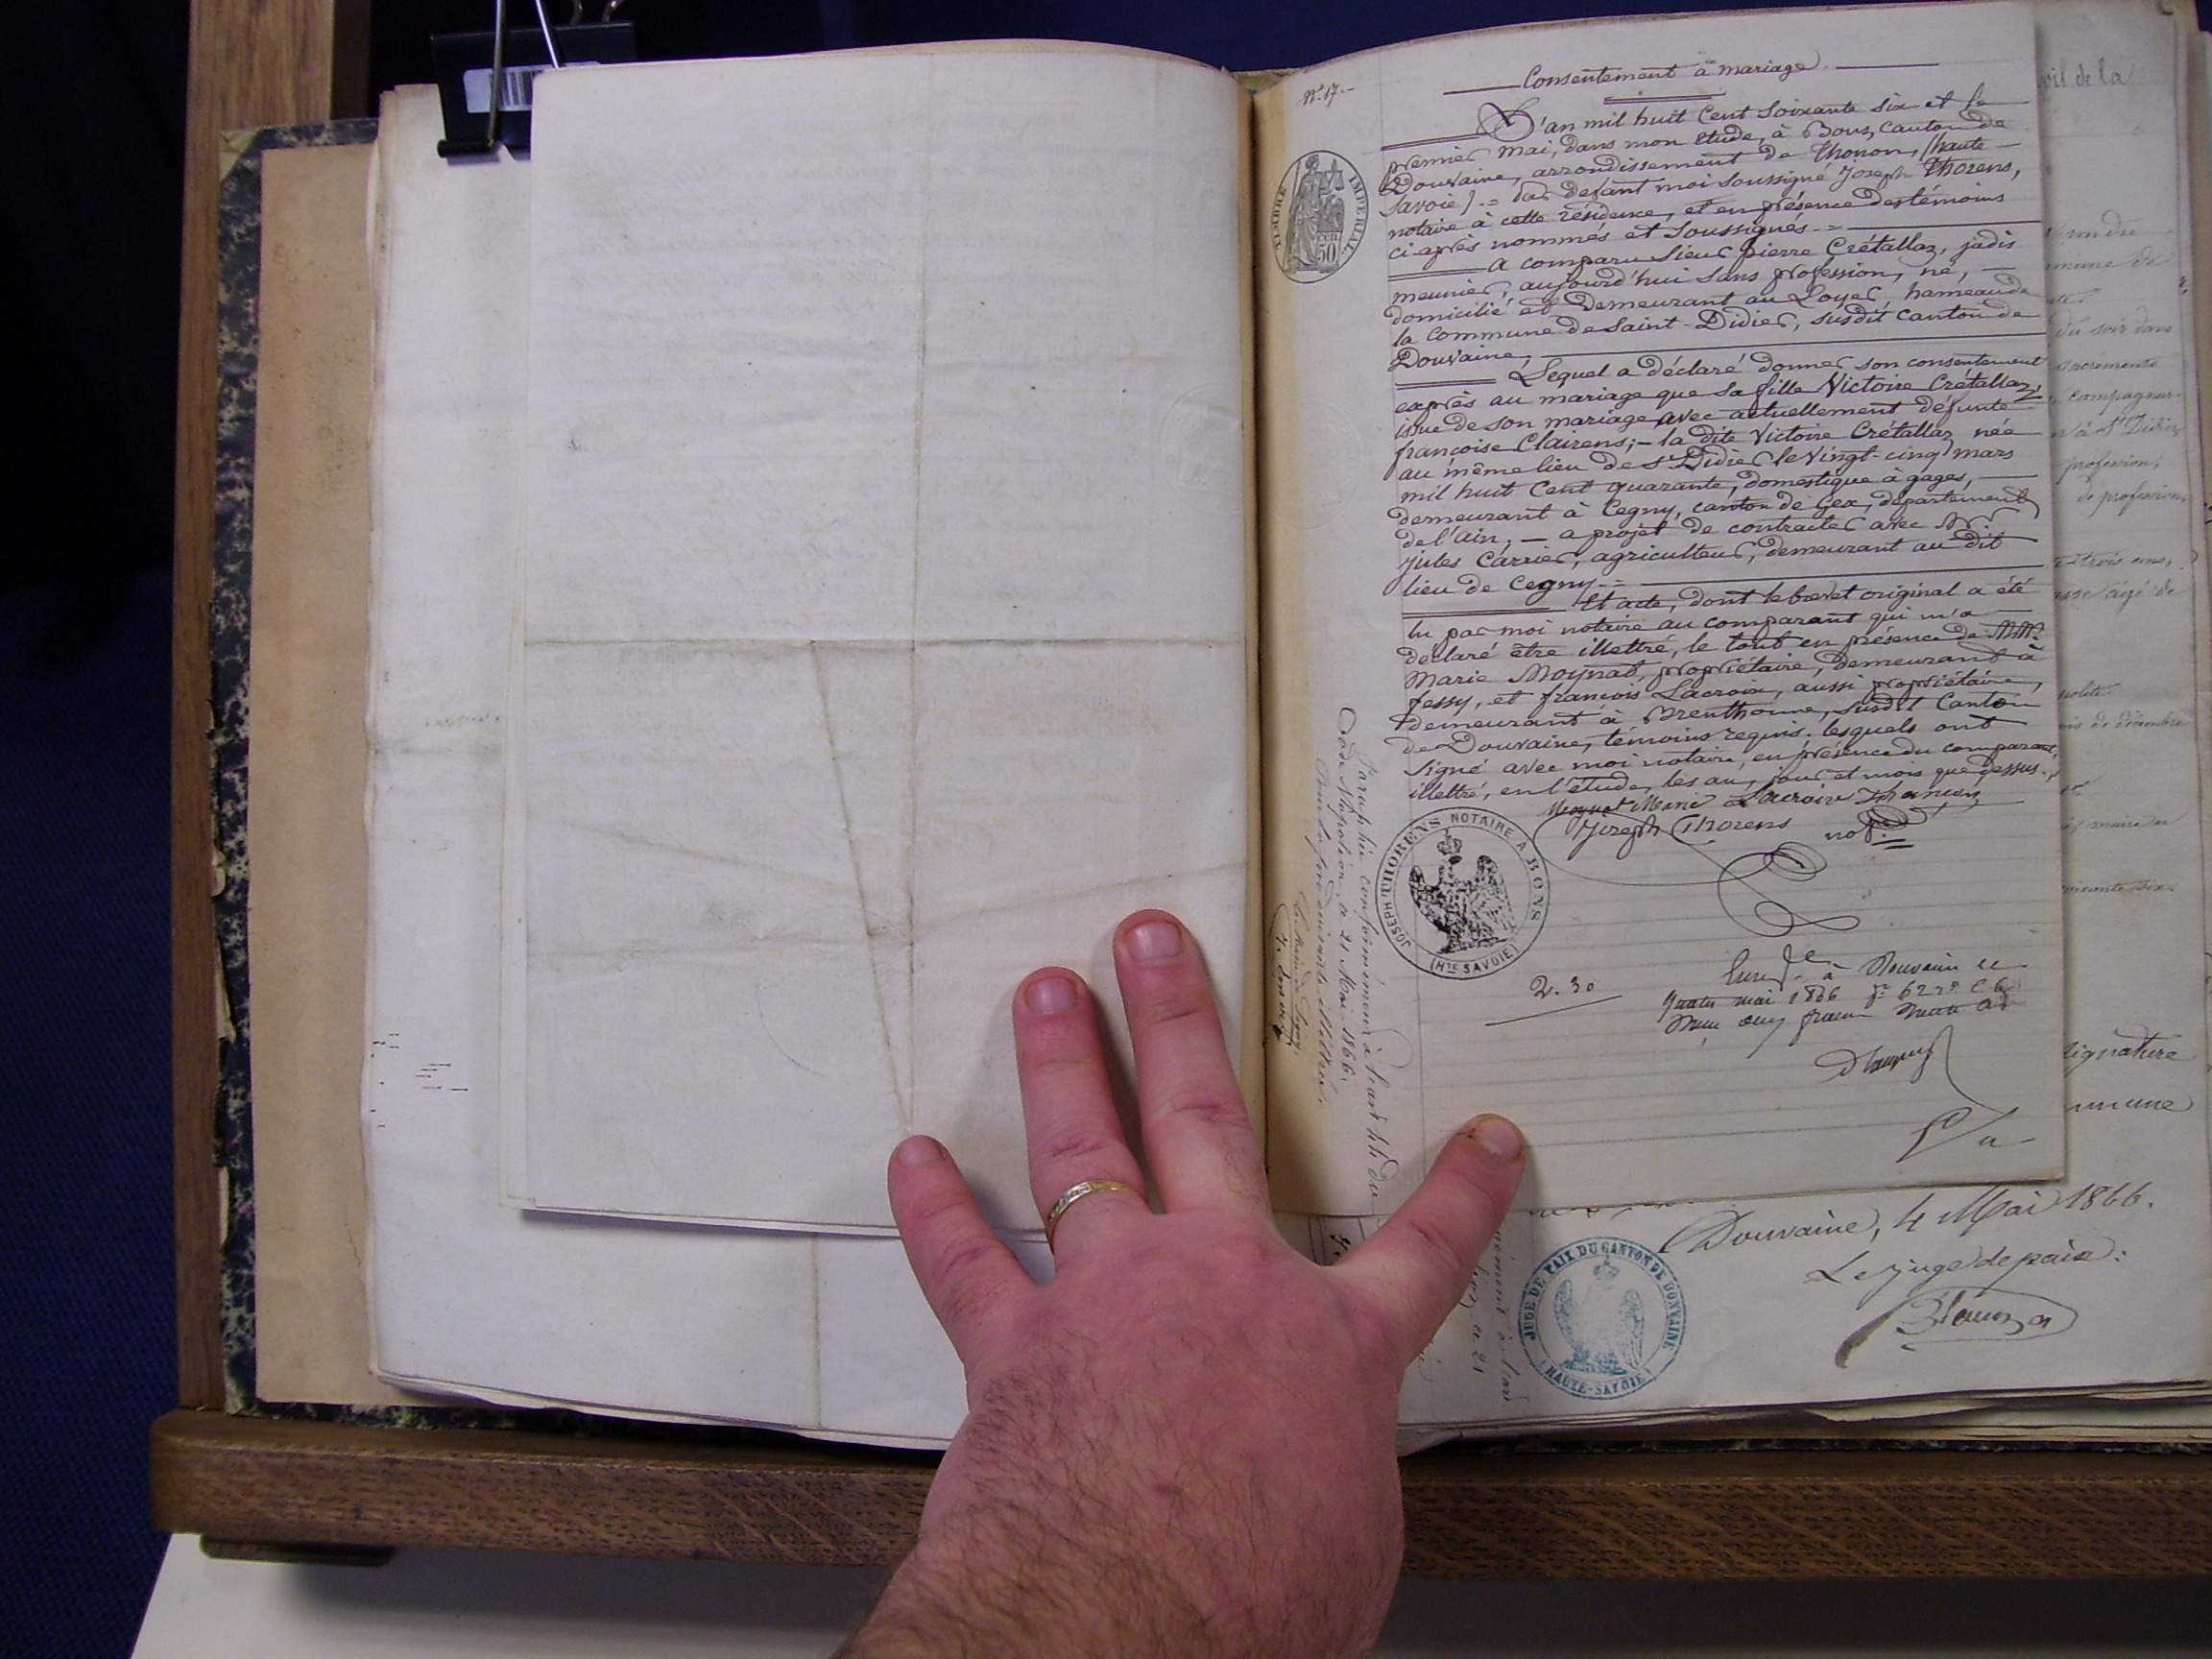 Nº 17
Consentement à mariage
L'an mil huit Cent Soixante six et le
premier mai, dans mon étude, à Bons, canton de
Douvaine, arrondissement de Thonon, (haute
Savoie) devant moi soussigné Joseph Thorens,
notaire à cette résidence, et en présence des témoins
ci-après nommés et soussignés
A comparu Sieur pierre Crétallaz, jadis
meunier, aujourd'hui sans profession, né,
domicilié et Demeurant au Loyer, hameau de
la Commune de Saint-Didier, susdit canton de
Douvaine,
Lequel a déclaré donner son consentement
exprès au mariage que sa fille Victoire Crétallaz,
issue de son mariage avec actuellement défunte
françoise Clairens; la dite Victoire Crétallaz née
au même lieu de St Didier le vingt-cinq mars
mil huit Cent quarante, domestique à gages,
demeurant à Cegny, canton de Gex, département
de l'ain; a projet de contracter avec Mr
jules Carrier, agriculteur, demeurant au dit
lieu de Cegny
Et acte, dont le brevet original a été
lu par moi notaire au comparant qui m'a
déclaré être illettré, le tout en présence de MM.
Marie Moynat, propriétaire, demeurant à
fessy, et françois Lacroix, aussi propriétaire,
demeurant à Brenthonne, susdit Canton
de Douvaine, témoins requis. lesquels ont
signé avec moi notaire, en présence du comparant,
illettré, en l'étude, les an, jour et mois que dessus.
Moynat Marie Lacroix françois
Joseph Thorens not.
TIMBRE IMPERIAL
50
JOSEPH THORENS NOTAIRE A BONS
(HTE SAVOIE)
2.30
mai 1866
Paraphé conformément à l'art. 44 du
Code Napoléon, a 21 Mai 1866.
Douvaine, 4 Mai 1866.
Le juge de paix:
JUGE DE PAIX DU CANTON DE DOUVAINE
(HAUTE-SAVOIE)
vil de la
du soir dans
campagnar
à St Didier
profession,
de profession
trois ans,
âgé de
de décembre
signature
mmune